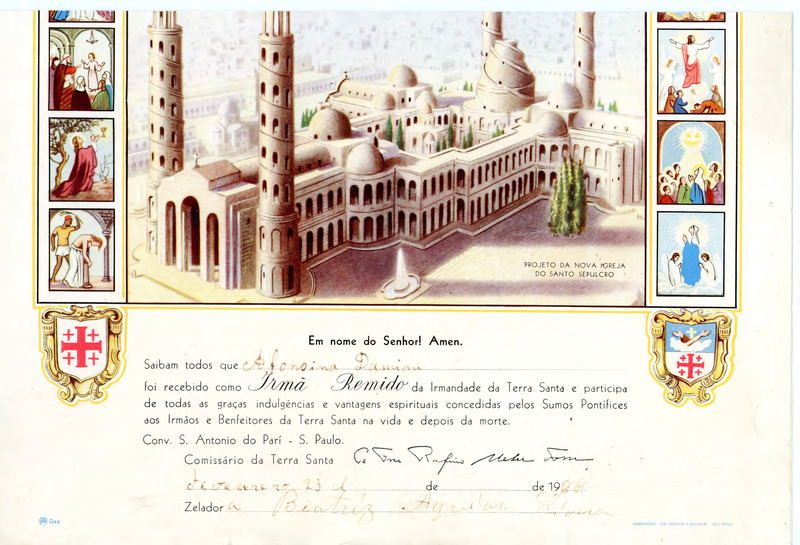 PROJETO DA NOVA IGREJA
DO SANTO SEPULCRO
Em nome do Senhor! Amen.
Saibam todos que Afonsina Damian
foi recebido como Irmã Remido da Irmandade da Terra Santa e participa
de todas as graças indulgências e vantagens espirituais concedidas pelos Sumos Pontífices
aos Irmãos e Benfeitores da Terra Santa na vida e depois da morte.
Conv. S. Antonio do Parí - S. Paulo.
Comissário da Terra Santa
Fevereiro 23 d de de 19
Zelador a Beatriz Aguiar
Dep